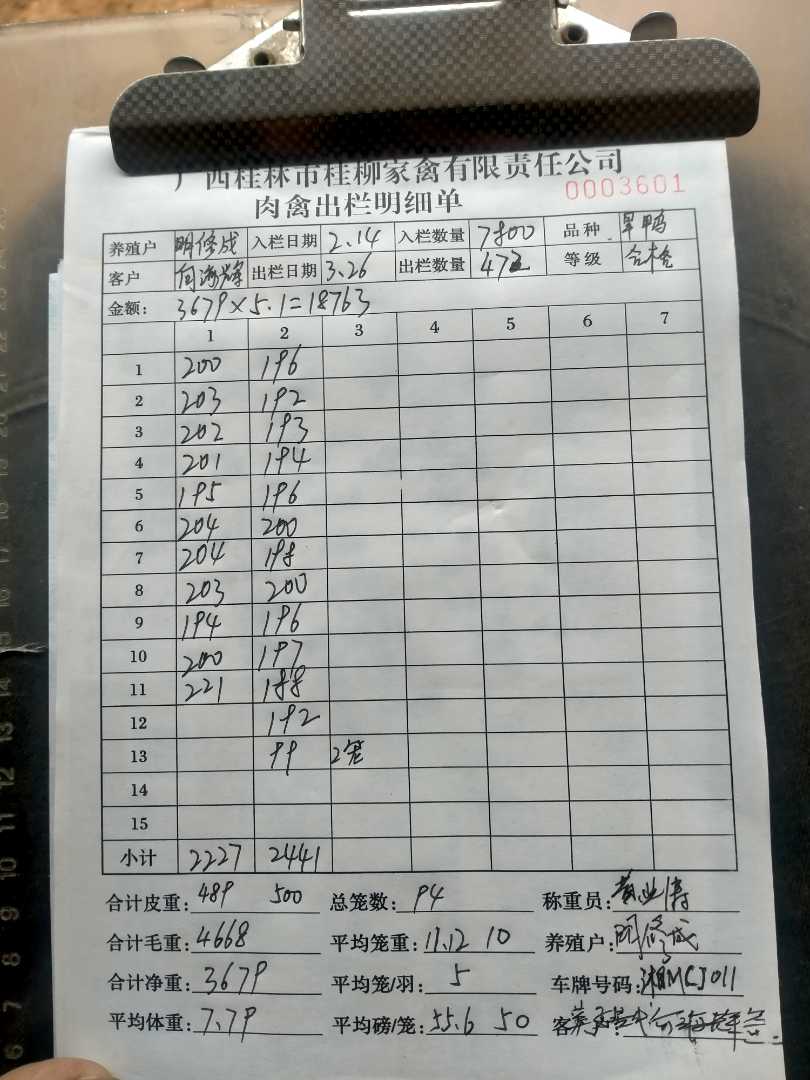 广西桂林市桂柳家禽有限责任公司
肉禽出栏明细单 0003601
养殖户 明修成 入栏日期 2.14 入栏数量 7800 品种 旱鸭
客户 何海辉 出栏日期 3.26 出栏数量 472 等级 合格
金额: 3679×5.1=18763
1 2 3 4 5 6 7
1 200 196
2 203 192
3 202 193
4 201 194
5 195 196
6 204 200
7 204 198
8 203 200
9 194 196
10 200 197
11 221 188
12 192
13 99 2笼
14
15
小计 2227 2441
合计皮重: 489 500 总笼数: 94 称重员:
合计毛重: 4668 平均笼重: 11.12 10 养殖户: 明修成
合计净重: 3679 平均笼/羽: 5 车牌号码: 湘MCJ011
平均体重: 7.79 平均磅/笼: 55.6 50 客